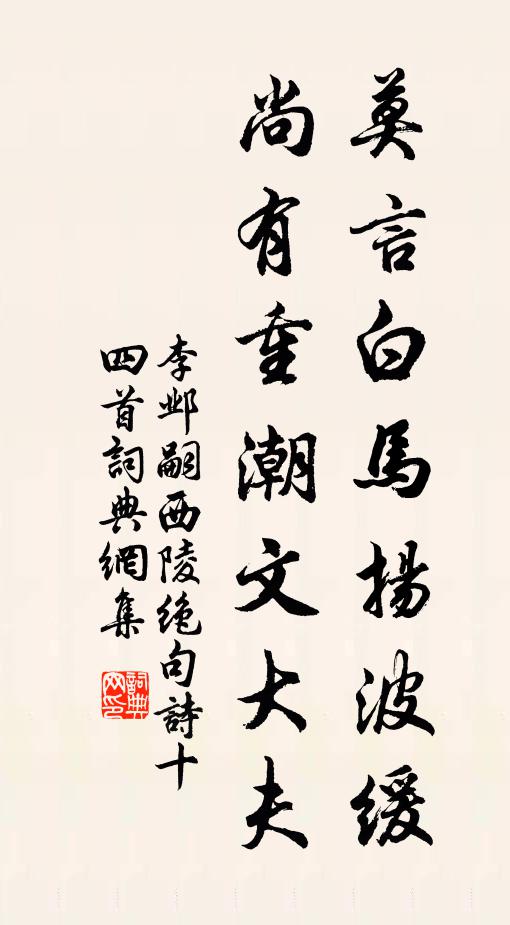 莫言白馬揚波緩
尚有重潮文大夫
李邺嗣西陵绝句詩十
四首詞典網集
詞典网印